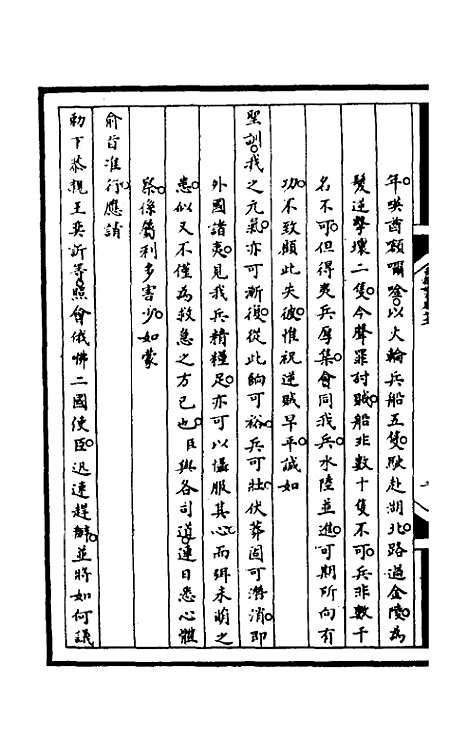 年。英酋額爾唫。以火輪兵船五隻。駛赴湖北。路過金陵。為
髮逆擊壞二隻。今聲罪討賊。船非數十隻不可。兵非數千
名不可。但得夷兵厚集。會同我兵。水陸並進。可期所向有
功。不致顧此失彼。惟祝逆賊早平。誠如
聖訓。我之元氣。亦可漸復。從此餉可裕。兵可壯。伏莽固可潛消。即
外國諸夷。見我兵精糧足。亦可以懾服其心。而弭未萌之
患。似又不僅為救急之方已也。臣與各司道。連日悉心體
察。係屬利多害少。如蒙
俞旨准行。應請
勅下恭親王奕訢等。照會俄佛二國使臣。迅速趕辦。並將如何議